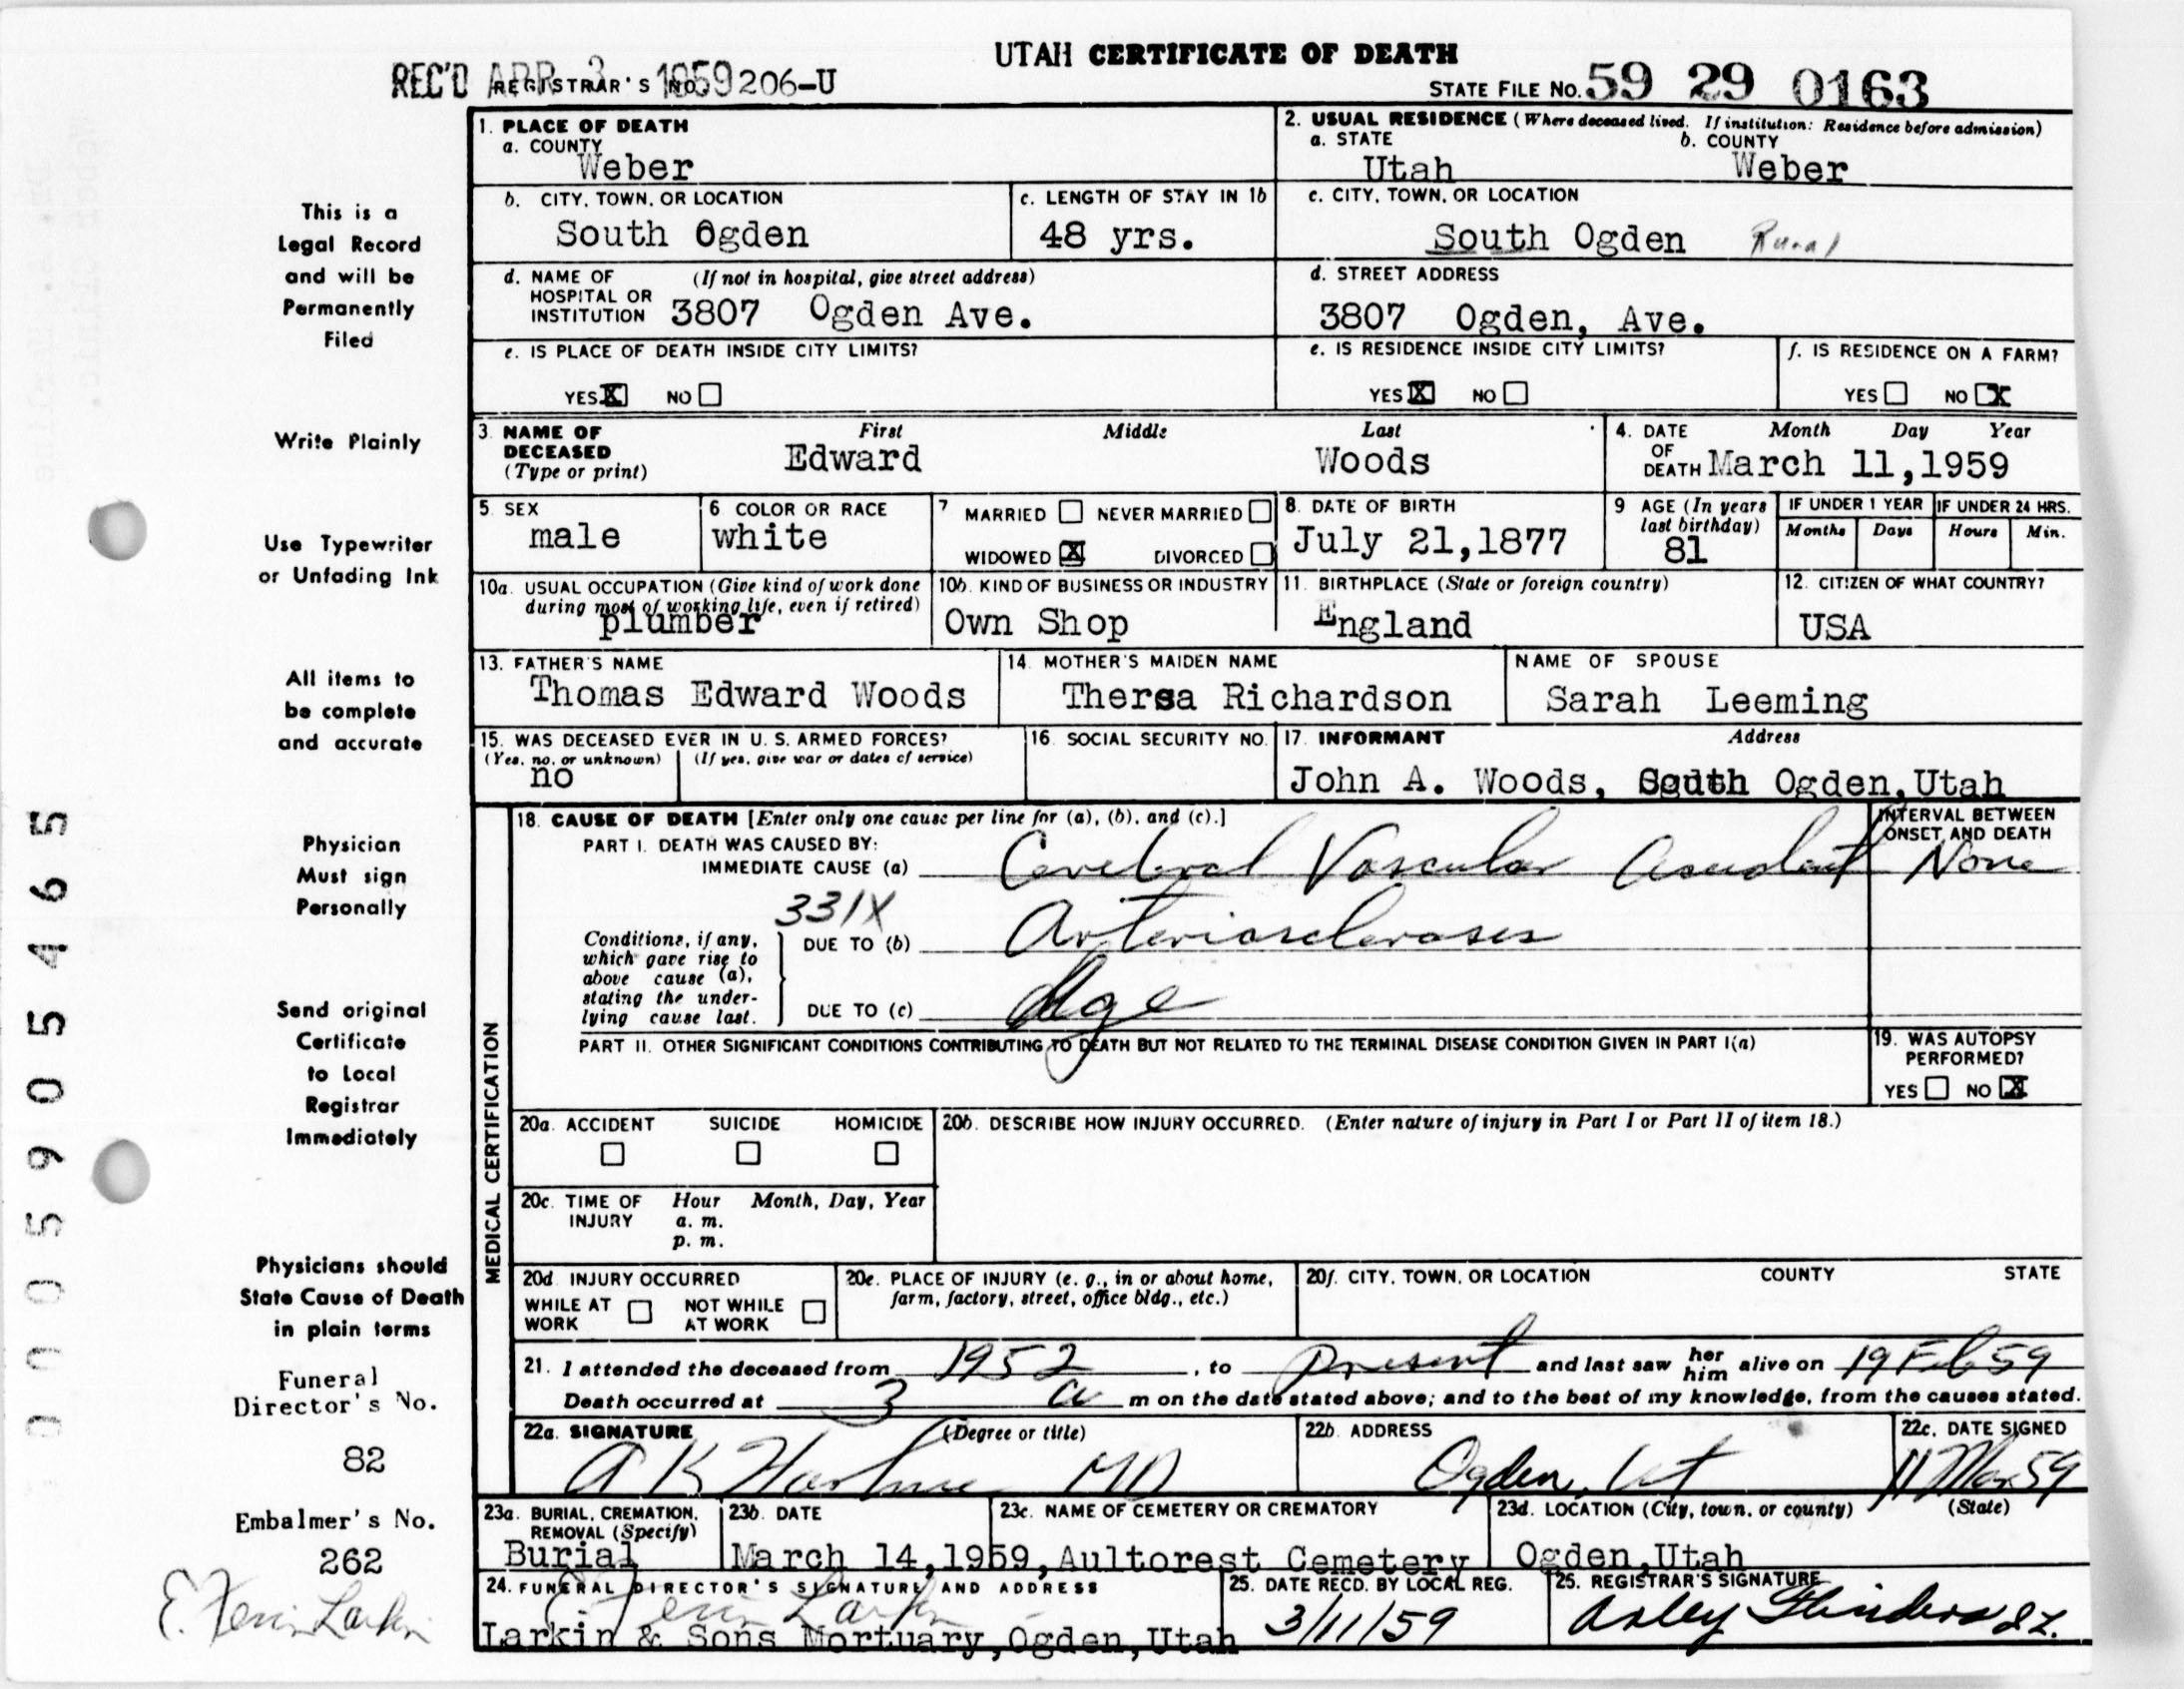 UTAH CERTIFICATE OF DEATH
REC'D APR 3 1959 REGISTRAR'S NO. 206-U
STATE FILE No. 59 29 0163
1. PLACE OF DEATH
a. COUNTY
Weber
2. USUAL RESIDENCE (Where deceased lived. If institution: Residence before admission)
a. STATE b. COUNTY
Utah Weber
b. CITY, TOWN, OR LOCATION
South Ogden
c. LENGTH OF STAY IN 1b
48 yrs.
c. CITY, TOWN, OR LOCATION
South Ogden Rural
d. NAME OF (If not in hospital, give street address)
HOSPITAL OR
INSTITUTION 3807 Ogden Ave.
d. STREET ADDRESS
3807 Ogden, Ave.
e. IS PLACE OF DEATH INSIDE CITY LIMITS?
YES X NO
e. IS RESIDENCE INSIDE CITY LIMITS?
YES X NO
f. IS RESIDENCE ON A FARM?
YES NO X
3. NAME OF First Middle Last
DECEASED
(Type or print) Edward Woods
4. DATE Month Day Year
OF
DEATH March 11,1959
5. SEX
male
6. COLOR OR RACE
white
7 MARRIED NEVER MARRIED
WIDOWED X DIVORCED
8. DATE OF BIRTH
July 21,1877
9 AGE (In years
last birthday)
81
IF UNDER 1 YEAR IF UNDER 24 HRS.
Months Days Hours Min.
10a. USUAL OCCUPATION (Give kind of work done
during most of working life, even if retired)
plumber
10b. KIND OF BUSINESS OR INDUSTRY
Own Shop
11. BIRTHPLACE (State or foreign country)
England
12. CITIZEN OF WHAT COUNTRY?
USA
13. FATHER'S NAME
Thomas Edward Woods
14. MOTHER'S MAIDEN NAME
Thersa Richardson
NAME OF SPOUSE
Sarah Leeming
15. WAS DECEASED EVER IN U. S. ARMED FORCES?
(Yes, no, or unknown) (If yes, give war or dates of service)
no
16. SOCIAL SECURITY NO.
17. INFORMANT Address
John A. Woods, South Ogden,Utah
MEDICAL CERTIFICATION
18. CAUSE OF DEATH [Enter only one cause per line for (a), (b), and (c).]
INTERVAL BETWEEN
ONSET AND DEATH
PART I. DEATH WAS CAUSED BY:
IMMEDIATE CAUSE (a) Cerebral Vascular Accident None
331X
Conditions, if any,
which gave rise to
above cause (a),
stating the under-
lying cause last.
DUE TO (b) Arteriosclerosis
DUE TO (c) Age
PART II. OTHER SIGNIFICANT CONDITIONS CONTRIBUTING TO DEATH BUT NOT RELATED TO THE TERMINAL DISEASE CONDITION GIVEN IN PART I(a)
19. WAS AUTOPSY
PERFORMED?
YES NO X
20a. ACCIDENT SUICIDE HOMICIDE
20b. DESCRIBE HOW INJURY OCCURRED. (Enter nature of injury in Part I or Part II of item 18.)
20c. TIME OF Hour Month, Day, Year
INJURY a. m.
p. m.
20d. INJURY OCCURRED
WHILE AT NOT WHILE
WORK AT WORK
20e. PLACE OF INJURY (e. g., in or about home,
farm, factory, street, office bldg., etc.)
20f. CITY, TOWN, OR LOCATION COUNTY STATE
21. I attended the deceased from 1952, to present and last saw her him alive on 19 Feb 59
Death occurred at 3 a m on the date stated above; and to the best of my knowledge, from the causes stated.
22a. SIGNATURE (Degree or title)
A K MD
22b. ADDRESS
Ogden, Ut
22c. DATE SIGNED
11 Mar 59
23a. BURIAL, CREMATION,
REMOVAL (Specify)
Burial
23b. DATE
March 14,1959,
23c. NAME OF CEMETERY OR CREMATORY
Aultorest Cemetery
23d. LOCATION (City, town, or county) (State)
Ogden,Utah
24. FUNERAL DIRECTOR'S SIGNATURE AND ADDRESS
E. Ferrin Larkin
Larkin & Sons Mortuary,Ogden,Utah
25. DATE RECD. BY LOCAL REG.
3/11/59
25. REGISTRAR'S SIGNATURE
Arley Flinders
This is a
Legal Record
and will be
Permanently
Filed
Write Plainly
Use Typewriter
or Unfading Ink
All items to
be complete
and accurate
Physician
Must sign
Personally
Send original
Certificate
to Local
Registrar
Immediately
Physicians should
State Cause of Death
in plain terms
Funeral
Director's No.
82
Embalmer's No.
262
E. Ferrin Larkin
0005905465